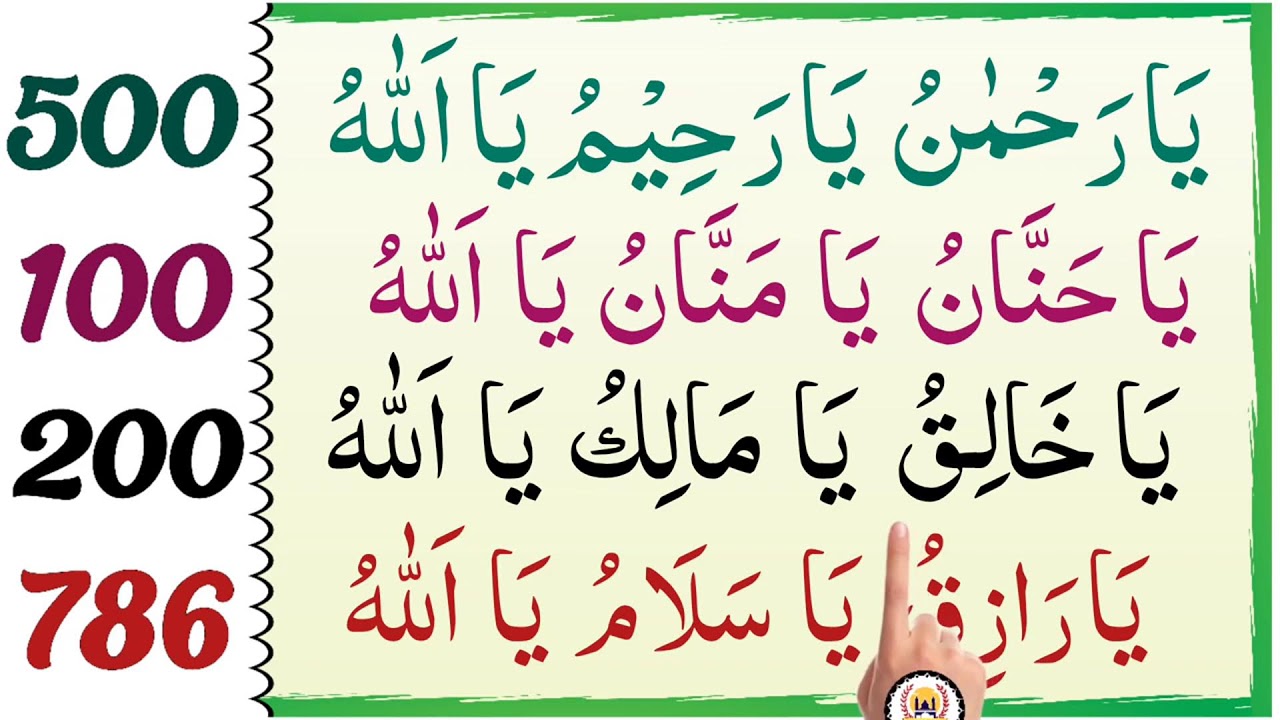 500 يَا رَحْمٰنُ يَا رَحِيْمُ يَا اَللّٰهُ
100 يَا حَنَّانُ يَا مَنَّانُ يَا اَللّٰهُ
200 يَا خَالِقُ يَا مَالِكُ يَا اَللّٰهُ
786 يَا رَازِقُ يَا سَلَامُ يَا اَللّٰهُ